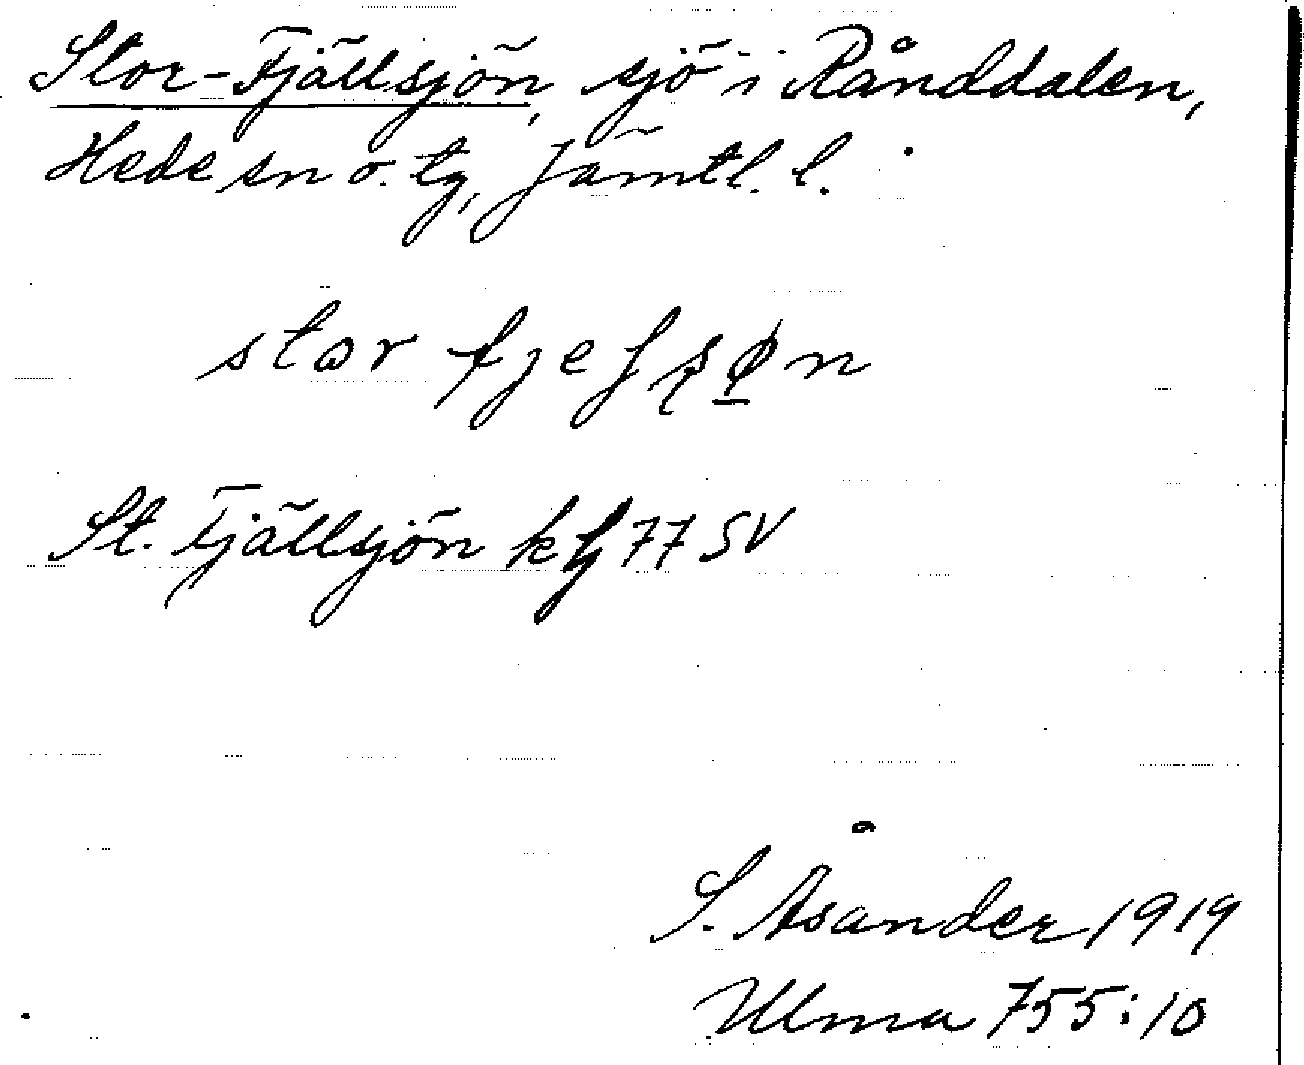 Stor-Fjällsjön, sjö i Rånddalen,
Hede sn o. tg, Jämtl. l.
stor fjeʃʂø̲n
St. Fjällsjön kbl 77 SV
S. Åsander 1919
Ulma 755:10